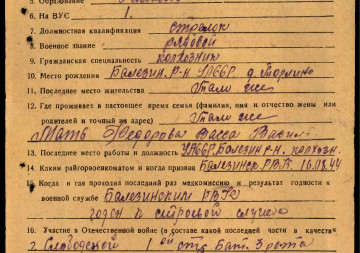 5. Образование
6. На ВУС 1.
7. Должностная квалификация стрелок
8. Военное звание рядовой
9. Гражданская специальность колхозник
10. Место рождения Балезин. р-н УАССР д.
11. Последнее место жительства Там же
12. Где проживает в настоящее время семья (фамилия, имя и отчество жены или
родителей и точный их адрес) Там же
Мать Федорова Васса Васил
13. Последнее место работы и должность УАССР, Балезин р-н. колхозн.
14. Каким райгорвоенкоматом и когда призван Балезинск. Р.В.К. 16.08.44
15. Когда и где проходил последний раз медкомиссию и результат годности к
военной службе Балезинским РВК
годен к строевой службе
16. Участие в Отечественной войне (в составе какой последней части и в качестве
Слободской 1 ой отд бат. 3 рота